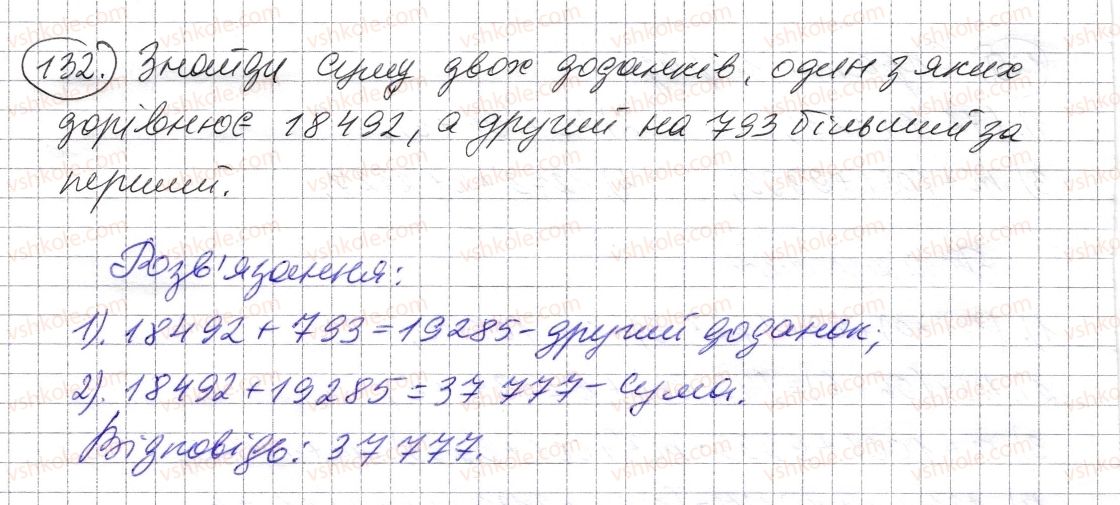 132. Знайди суму двох доданків, один з яких
дорівнює 18492, а другий на 793 більший за
перший.
Розв'язання:
1). 18492 + 793 = 19285 - другий доданок;
2). 18492 + 19285 = 37 777 - сума.
Відповідь: 37 777.